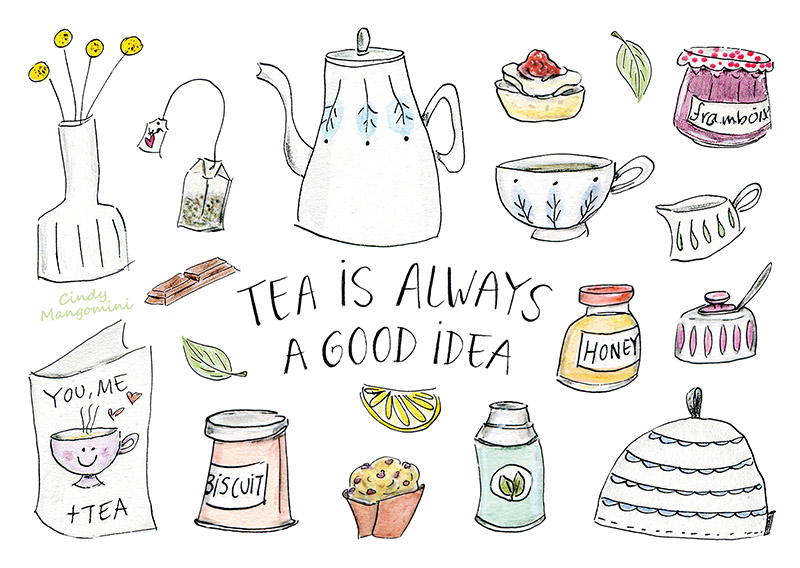 framboix
Cindy
Mangomini
TEA iS ALWAYS
A GOOD iDEA
HONEY
YOU, ME
+TEA
BiSCUiT